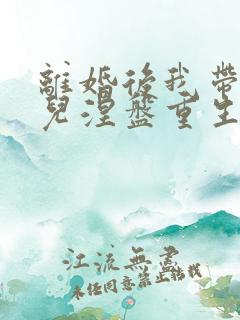 離婚後我帶
兒涅盤重生
江流無盡
未经同意禁止转载